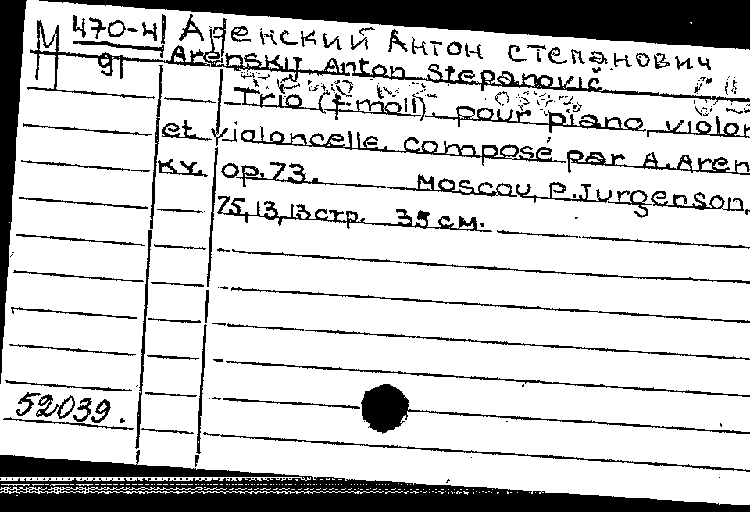 М 470-4 Аренский Антон Степанович
91 Arenskij Anton Stepanovič
Trio (f-moll). pour piano, violon
et violoncelle, composé par A. Aren
ky. op. 73. Moscou, P. Jurgenson,
75, 13, 13 стр. 35 см.
52039.